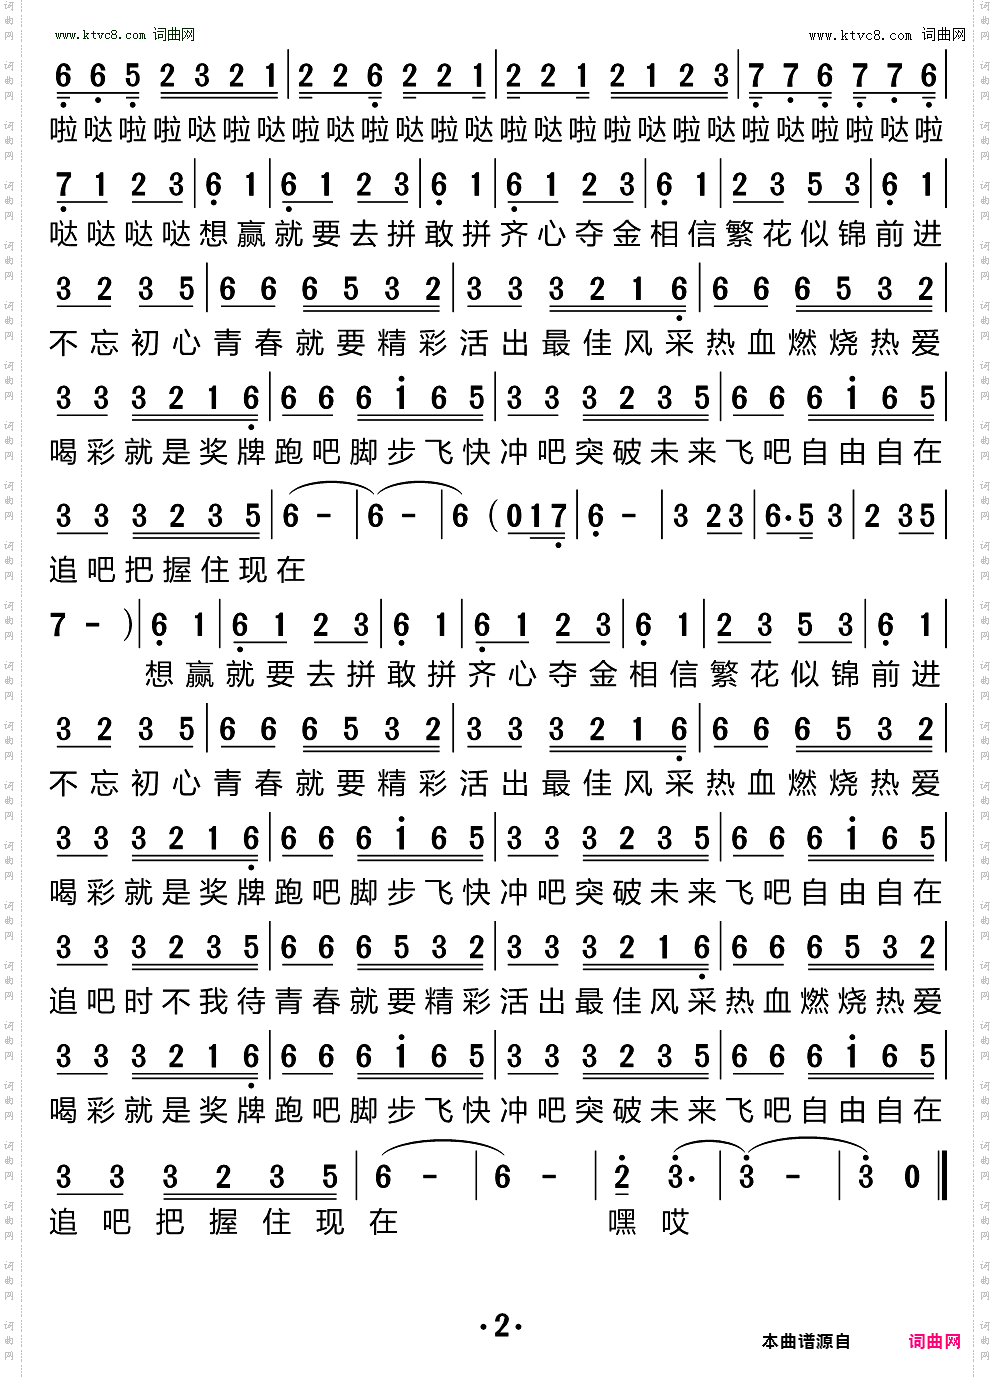 www.ktvc8.com 词曲网 www.ktvc8.com 词曲网
6 6 5 2 3 2 1 | 2 2 6 2 2 1 | 2 2 1 2 1 2 3 | 7 7 6 7 7 6 |
啦哒啦啦哒啦哒啦哒啦哒啦哒啦哒啦啦哒啦哒啦哒啦啦哒啦
7 1 2 3 | 6 1 | 6 1 2 3 | 6 1 | 6 1 2 3 | 6 1 | 2 3 5 3 | 6 1
哒哒哒哒想赢就要去拼敢拼齐心夺金相信繁花似锦前进
3 2 3 5 | 6 6 6 5 3 2 | 3 3 3 2 1 6 | 6 6 6 5 3 2 |
不忘初心青春就要精彩活出最佳风采热血燃烧热爱
3 3 3 2 1 6 | 6 6 6 i 6 5 | 3 3 3 2 3 5 | 6 6 6 i 6 5 |
喝彩就是奖牌跑吧脚步飞快冲吧突破未来飞吧自由自在
3 3 3 2 3 5 | 6 - | 6 - | 6 (0 1 7 | 6 - | 3 2 3 | 6· 5 3 | 2 3 5 |
追吧把握住现在
7 - ) | 6 1 | 6 1 2 3 | 6 1 | 6 1 2 3 | 6 1 | 2 3 5 3 | 6 1 |
想赢就要去拼敢拼齐心夺金相信繁花似锦前进
3 2 3 5 | 6 6 6 5 3 2 | 3 3 3 2 1 6 | 6 6 6 5 3 2 |
不忘初心青春就要精彩活出最佳风采热血燃烧热爱
3 3 3 2 1 6 | 6 6 6 i 6 5 | 3 3 3 2 3 5 | 6 6 6 i 6 5 |
喝彩就是奖牌跑吧脚步飞快冲吧突破未来飞吧自由自在
3 3 3 2 3 5 | 6 6 6 5 3 2 | 3 3 3 2 1 6 | 6 6 6 5 3 2 |
追吧时不我待青春就要精彩活出最佳风采热血燃烧热爱
3 3 3 2 1 6 | 6 6 6 i 6 5 | 3 3 3 2 3 5 | 6 6 6 i 6 5 |
喝彩就是奖牌跑吧脚步飞快冲吧突破未来飞吧自由自在
3 3 3 2 3 5 | 6 - | 6 - | 2 3· | 3 - | 3 0 ‖
追吧把握住现在 嘿哎
·2·
本曲谱源自 词曲网